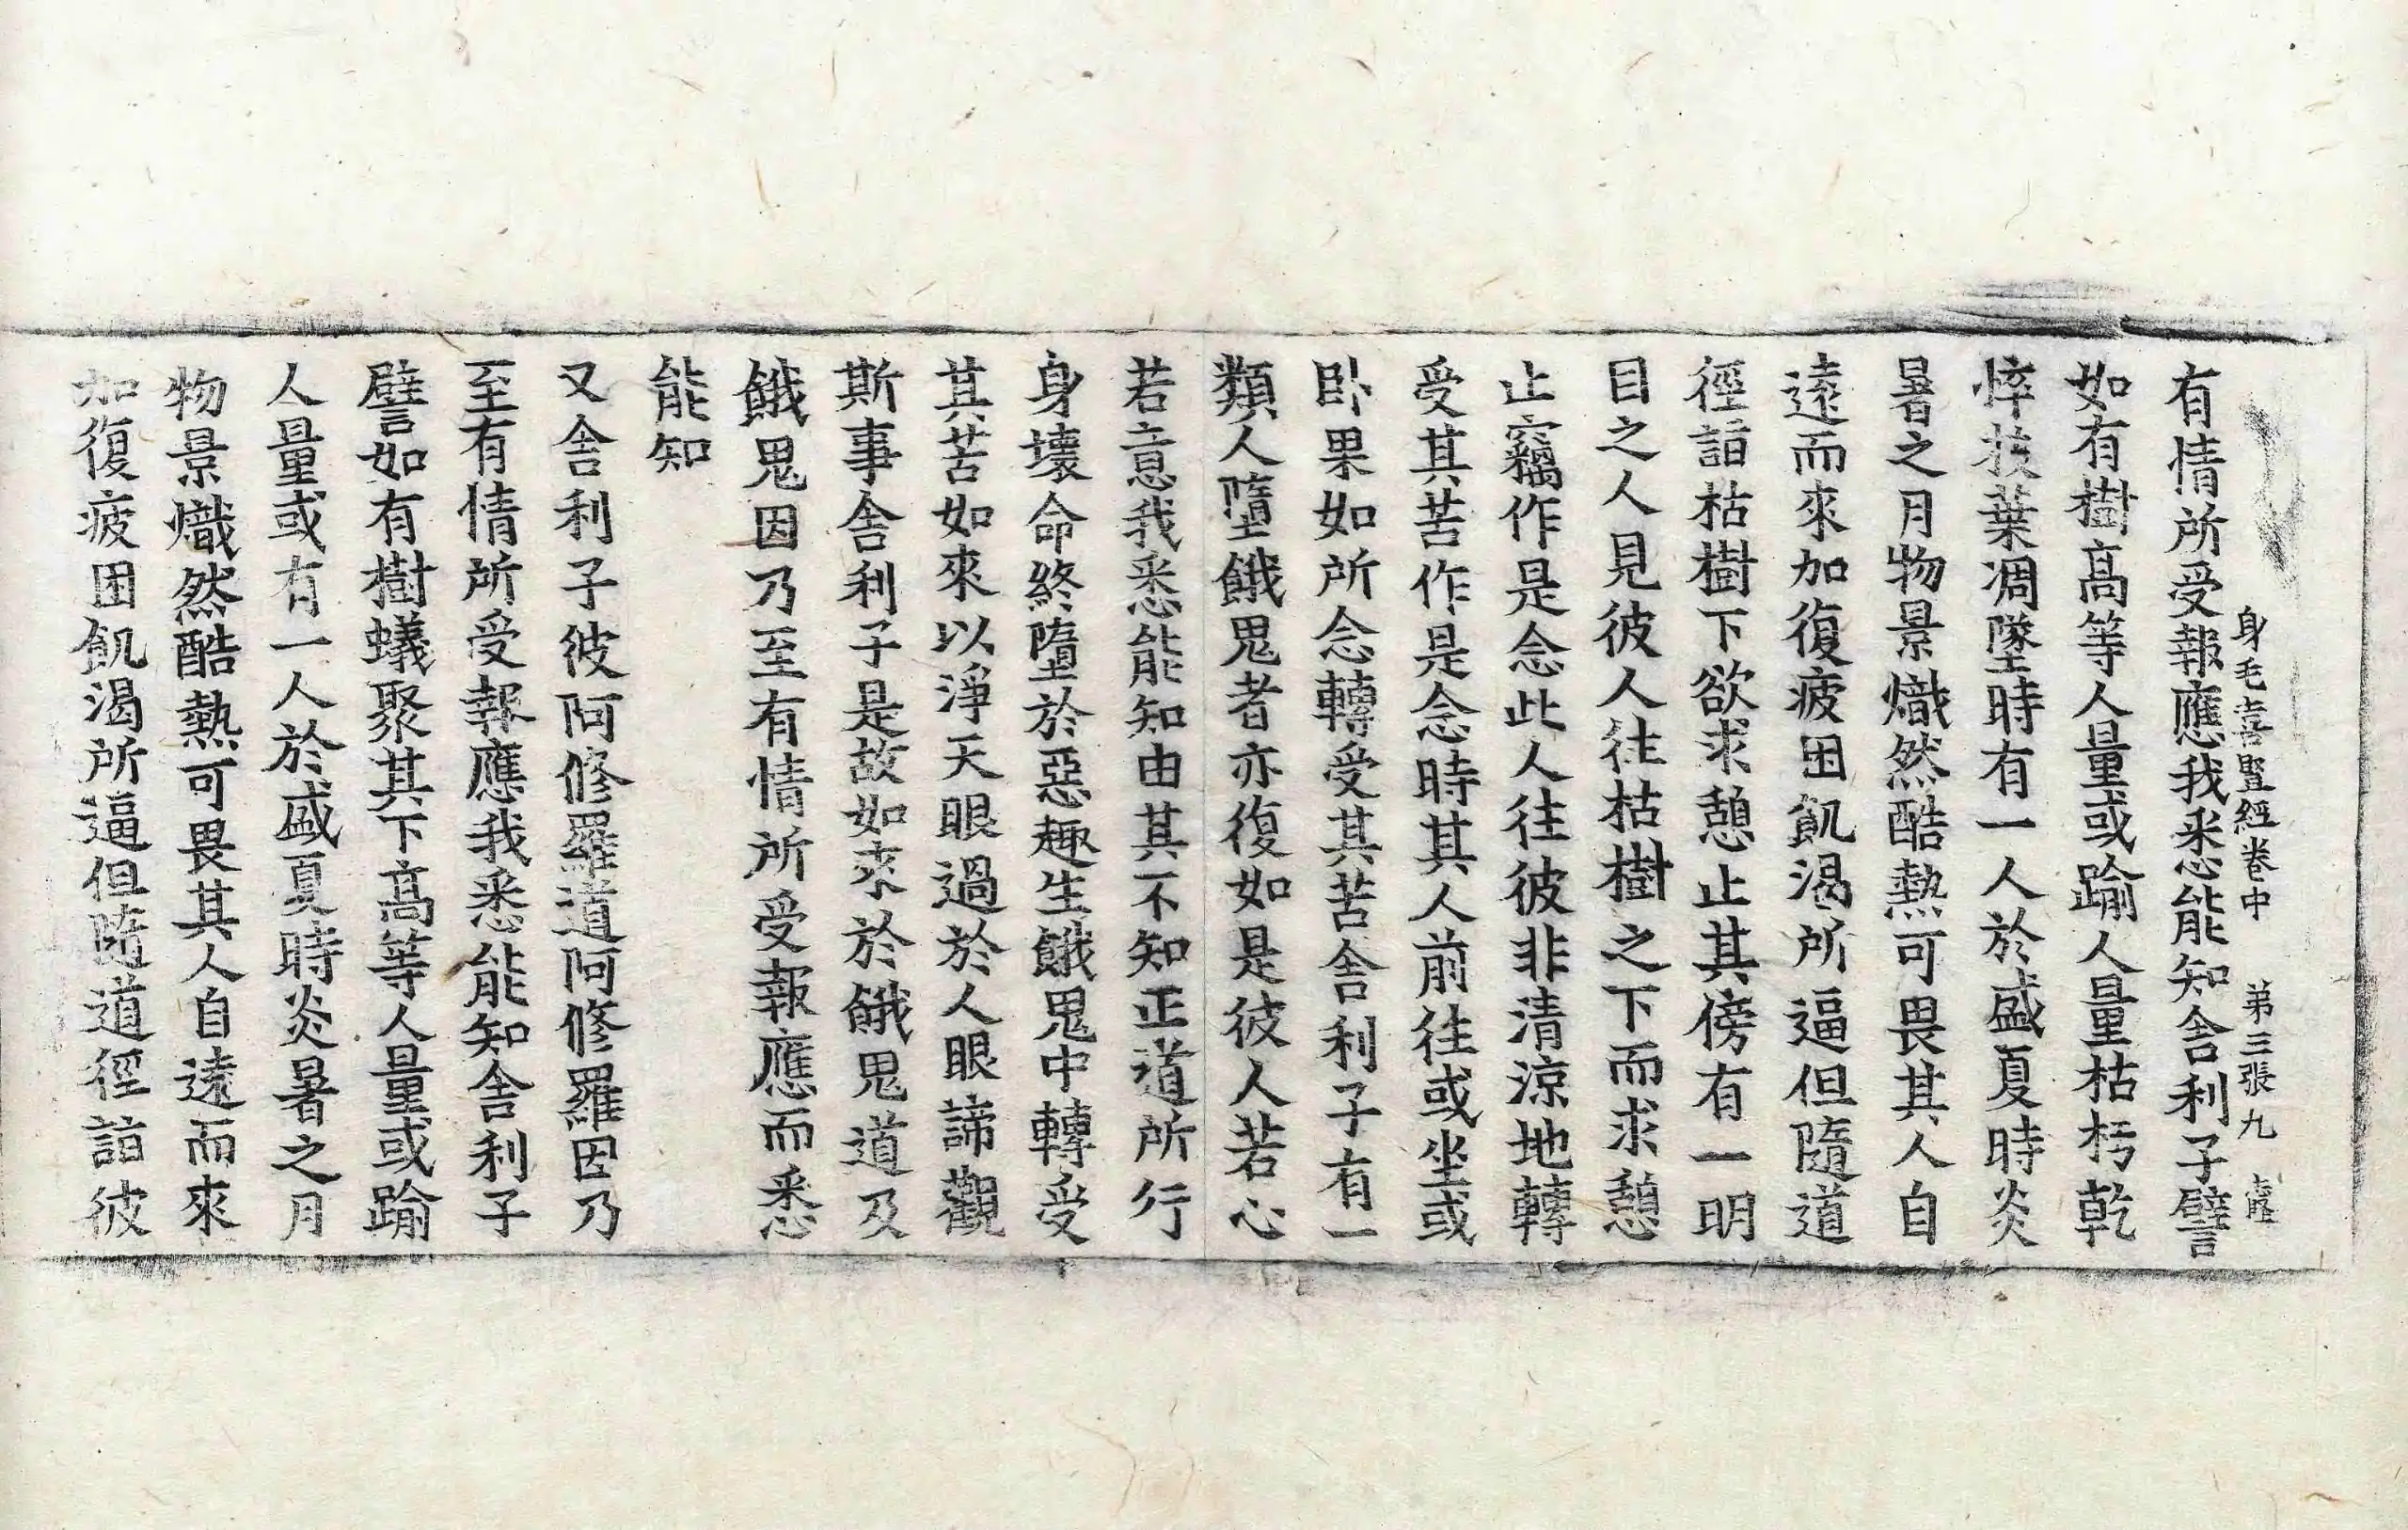 身毛喜竪經卷中 第三張 九
有情所受報應我悉能知舍利子譬
如有樹高等人量或踰人量枯杇乾
悴枝葉凋墜時有一人於盛夏時炎
暑之月物景熾然酷熱可畏其人自
遠而來加復疲困飢渴所逼但隨道
徑詣枯樹下欲求憩止其傍有一明
目之人見彼人往枯樹之下而求憩
止竊作是念此人往彼非清涼地轉
受其苦作是念時其人前往或坐或
卧果如所念轉受其苦舍利子有一
類人墮餓鬼者亦復如是彼人若心
若意我悉能知由其不知正道所行
身壞命終墮於惡趣生餓鬼中轉受
其苦如來以淨天眼過於人眼諦觀
斯事舍利子是故如來於餓鬼道及
餓鬼因乃至有情所受報應而悉
能知
又舍利子彼阿修羅道阿修羅因乃
至有情所受報應我悉能知舍利子
譬如有樹蟻聚其下高等人量或踰
人量或有一人於盛夏時炎暑之月
物景熾然酷熱可畏其人自遠而來
加復疲困飢渴所逼但隨道徑詣彼